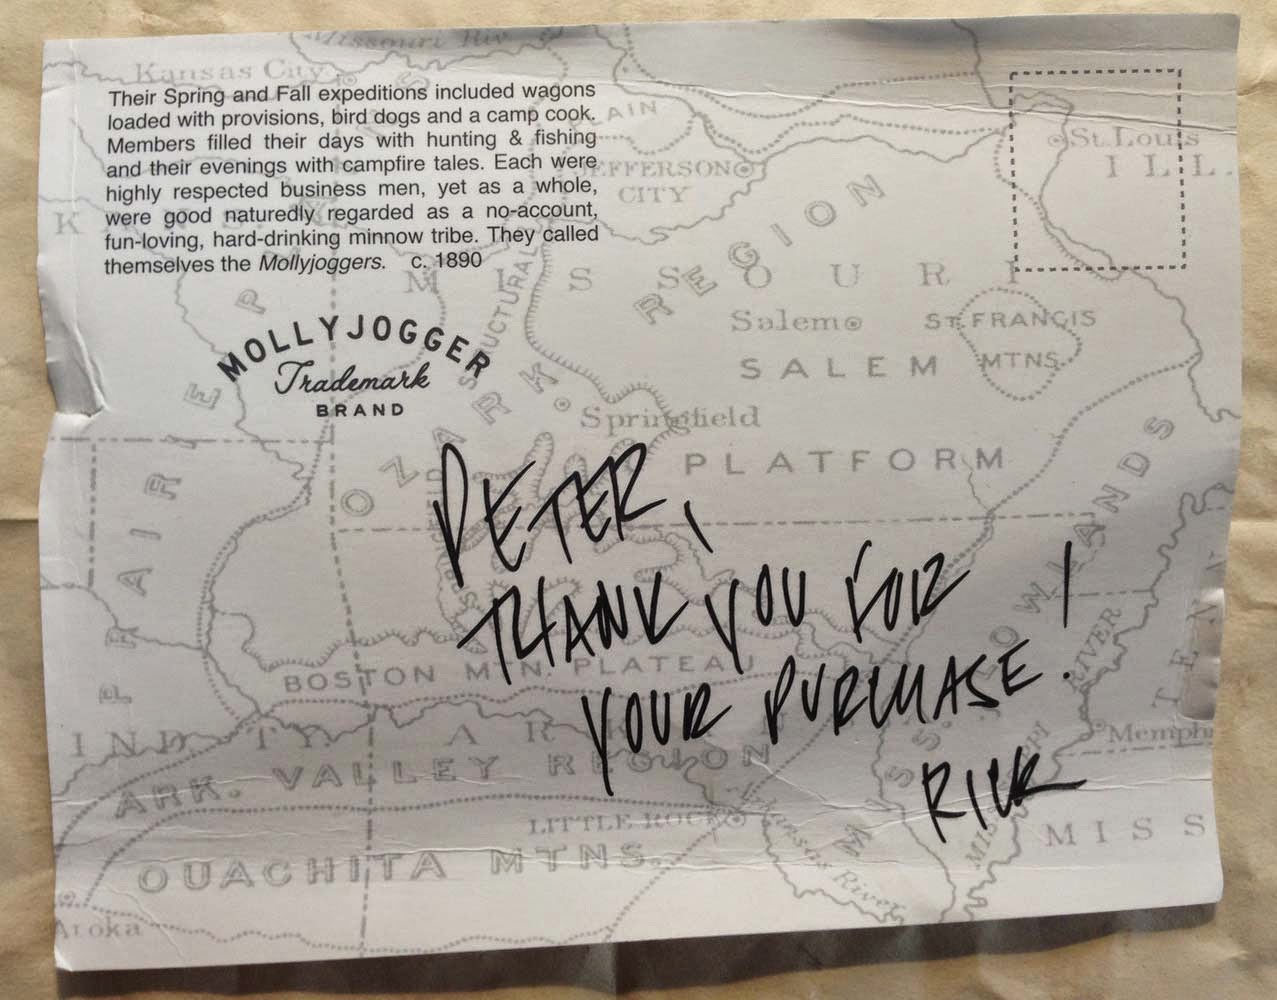 Missouri Riv.
Kansas City
Their Spring and Fall expeditions included wagons
loaded with provisions, bird dogs and a camp cook.
Members filled their days with hunting & fishing
and their evenings with campfire tales. Each were
highly respected business men, yet as a whole,
were good naturedly regarded as a no-account,
fun-loving, hard-drinking minnow tribe. They called
themselves the Mollyjoggers. c. 1890
JEFFERSON
CITY
St. Louis
ILL.
MISSOURI
REGION
MOLLYJOGGER
Trademark
BRAND
Salem
ST. FRANCIS
MTNS.
SALEM
PLATFORM
STRUCTURAL
OZARK
Springfield
PRAIRIE
LOWLANDS
PETER,
THANK YOU FOR
YOUR PURCHASE!
RICK
BOSTON MTN. PLATEAU
IND. TY.
ARK
ARK. VALLEY REGION
RIVER
TEN
Memphi
LITTLE ROCK
OUACHITA MTNS.
Arkansas River
MISS
Atoka